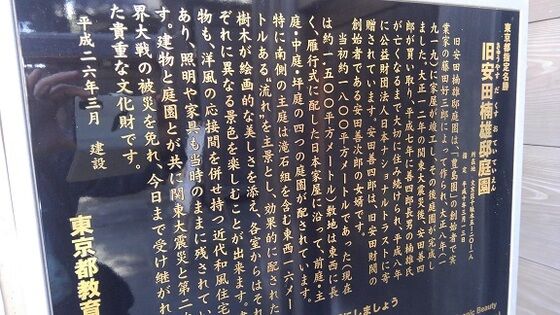 東京都指定名勝
旧安田楠雄邸庭園
きゅうやすだくすおていていえん
旧安田楠雄邸庭園は、「豊島園」の創始者で実
業家の藤田好三郎によって作られ、大正八年(一
九一九)に家屋が竣工し、その後庭園が完成し
ました。大正一二年の関東大震災後、安田善四
郎が買い取り、平成七年に善四郎長男の楠雄氏
が亡くなるまで大切に住み続けられ、平成八年
に公益財団法人日本ナショナルトラストに寄
贈されています。安田善四郎は、旧安田財閥の
創始者である安田善次郎の女婿です。
当初約一八〇〇平方メートルであった(現在
は約一五〇〇平方メートル)敷地は東西に長
く、雁行式に配した日本家屋に沿って、前庭・主
庭・中庭・坪庭の四つの庭園が配されています。
特に南側の主庭は滝石組を含む東西一六メー
トルある“流れ”を主景とし、効果的に配された
樹木が絵画的な美しさを添え、各室からはそれ
ぞれに異なる景色を楽しむことが出来ます。
物も、洋風の応接間を併せ持つ近代和風住宅
あり、照明や家具も当時のままに残されてい
す。建物と庭園とが共に関東大震災と第二
界大戦の被災を免れ、今日まで受け継がれ
た貴重な文化財です。
平成二六年三月 建設
東京都教育
にしましょう
Beauty